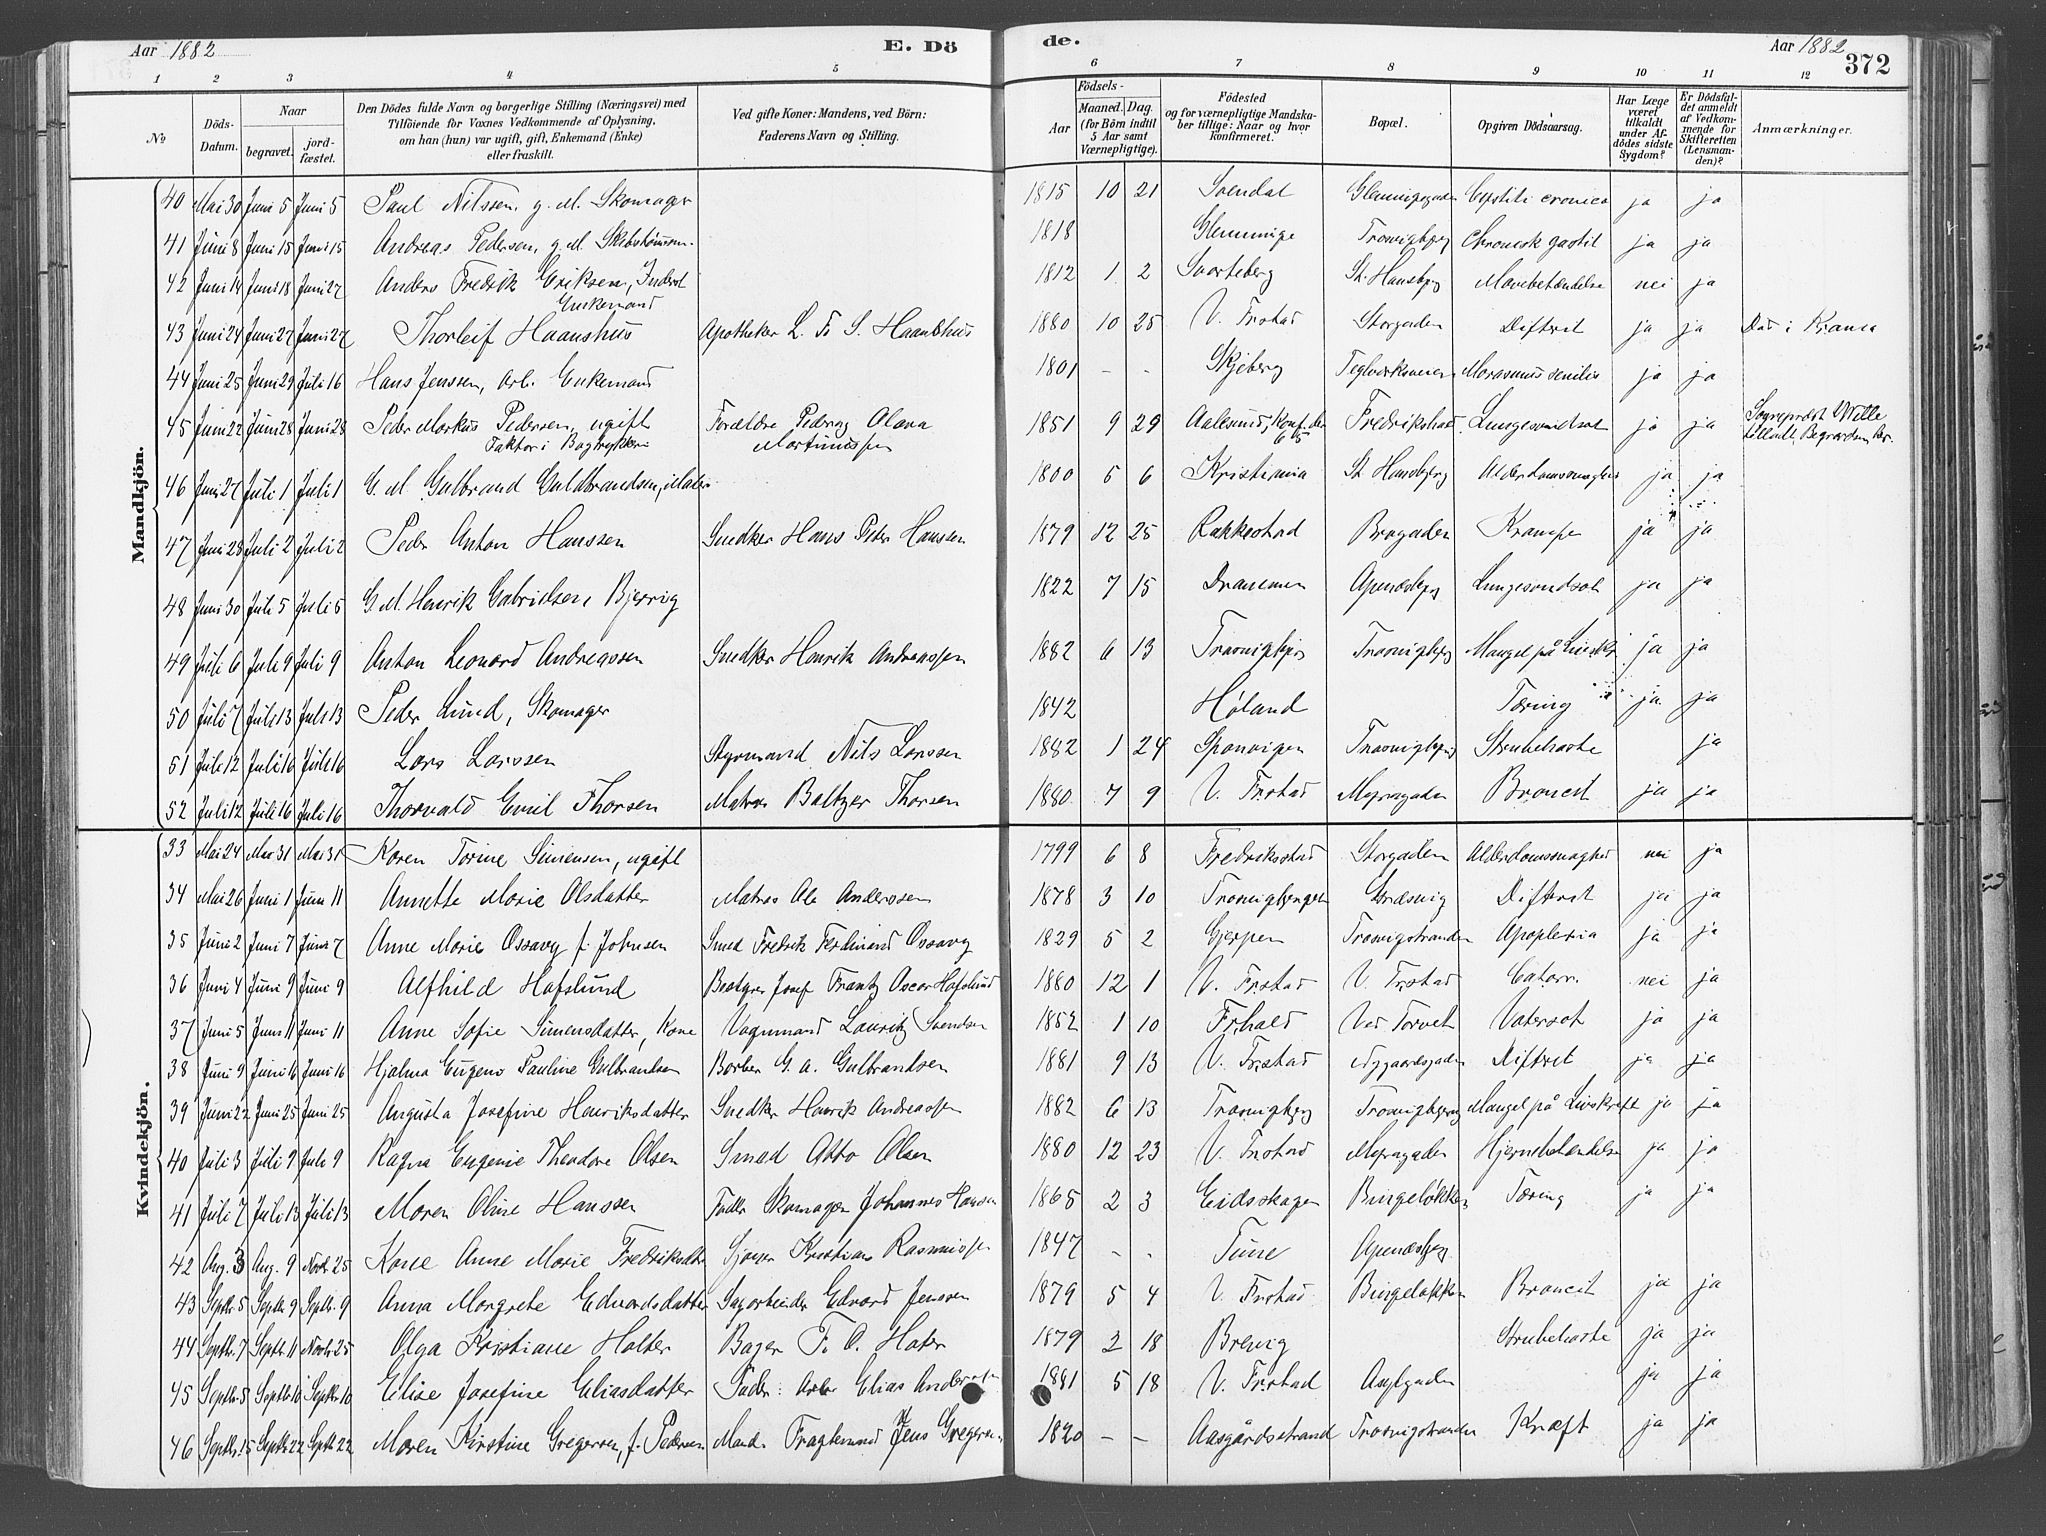 Aar 1882 E. Dö de. Aar 1882 372
1 2 3 4 5 6 7 8 9 10 11 12
No Döds-Datum. Naar begravet. jordfæstet. Den Dödes fulde Navn og borgerlige Stilling (Næringsvei) med Tilföiende for Voxnes Vedkommende af Oplysning, om han (hun) var ugift, gift, Enkemand (Enke) eller fraskilt. Ved gifte Koner: Mandens, ved Börn: Faderens Navn og Stilling. Födsels- Aar Maaned. Dag. (for Börn indtil 5 Aar samt Værnepligtige). Födested og for værnepligtige Mandskaber tillige: Naar og hvor konfirmeret. Bopæl. Opgiven Dödsaarsag. Har Læge været tilkaldt under Afdödes sidste Sygdom? Er Dödsfaldet anmeldt af Vedkommende for Skifteretten (Lensmanden)? Anmærkninger.
Mandkjön.
40 Mai 30 Juni 5 Juni 5 Paul Nilssen, g. M. Skomager 1815 10 21 ja ja
41 Juni 8 Juni 15 Juni 15 Andreas Pedersen, g. M. 1818 Glemminge Chronisk ja ja
42 Juni 14 Juni 18 Juni 27 Anders Fredrik Eriksen, Inderst 1812 1 2 Svarteberg St. Hansbjerg Mavebetændelse nei ja
Enkemand
43 Juni 24 Juni 27 Juni 27 Thorleif Haanshus Apotheker L. Fr. S. Haanshus 1880 10 25 V. Frstad Storgaden Difterit ja ja Død i Krania
44 Juni 25 Juni 29 Juli 16 Hans Jenssen, Arb. Enkemand 1801 - - Skjeberg Marasmus senilis ja ja
45 Juni 22 Juni 28 Juni 28 Peder Markus Pedersen, ugift Forældre Peder og Olava 1851 9 29 Aalesund, Konf. Fredrikstad Lungesvindsot ja ja Sogneprest Wille
Faktor i Bogtrykkeri
46 Juni 27 Juli 1 Juli 1 G. M. Gulbrand Guldbrandsen, Maler 1800 5 6 Kristiania St. Hansbjerg Alderdomssvaghed ja ja
47 Juni 28 Juli 2 Juli 2 Peder Anton Hanssen Snedker Hans Peder Hanssen 1879 12 25 Rakkestad Brogaden Krampe ja ja
48 Juni 30 Juli 5 Juli 5 G. M. Henrik Gabrielsen Bjerrig 1822 7 15 Drammen Apenæsbjerg Lungesvindsot ja ja
49 Juli 6 Juli 9 Juli 9 Anton Leonard Andreassen Snedker Henrik Andreassen 1882 6 13 Trosvigbjerg Trosvigbjerg Mangel på Livskr. ja ja
50 Juli 7 Juli 13 Juli 13 Peder Lund, Skomager 1842 Høland Tæring ja ja
51 Juli 12 Juli 16 Juli 16 Lars Larssen Styrmand Nils Larssen 1882 1 24 Spanvigen Trosvigbjerg Strubehoste ja
52 Juli 12 Juli 16 Juli 16 Thorvald Emil Thorsen Matros Baltzer Thorsen 1880 7 9 V. Frstad Broncit ja ja
Kvindekjön.
33 Mai 24 Mai 31 Mai 31 Karen Torine Simensen, ugift 1799 6 8 Fredriksstad Storgaden Alderdomssvaghed nei ja
34 Mai 26 Juni 1 Juni 11 Annette Marie Olsdatter Matros Ole Anderssen 1878 3 10 Trosvigbjergen Græsvig Difterit ja ja
35 Juni 2 Juni 7 Juni 7 Anne Marie Ossavy f. Johnsen Smed Fredrik Ferdinand Ossavy 1829 5 2 Gjerpen Trosvigstranden Apoplexia ja ja
36 Juni 4 Juni 9 Juni 9 Alfhild Hafslund Bestyrer Josef Frantz Oscar Hafslund 1880 12 1 V. Frstad V. Frstad Catarr. nei ja
37 Juni 5 Juni 11 Juni 11 Anne Sofie Simensdatter, Kone Vognmand Lauritz Svendsen 1852 1 10 Frhald Ved Torvet Vatersot ja ja
38 Juni 9 Juni 16 Juni 16 Hjalma Eugeno Pauline Gulbrandsen Barber G. A. Gulbrandsen 1881 9 13 V. Frstad Nygaardsgaden Difterit ja ja
39 Juni 22 Juni 25 Juni 25 Augusta Josefine Henriksdatter Snedker Henrik Andreassen 1882 6 13 Trosvigbjerg Trosvigbjerg Mangel på Livskraft ja ja
40 Juli 3 Juli 9 Juli 9 Ragna Eugenie Theodore Olsen Smed Otto Olsen 1880 12 23 V. Frstad Hjernebetændelse ja ja
41 Juli 7 Juli 13 Juli 13 Maren Oline Hanssen Fader Skomager Johannes Hansen 1865 2 3 Eidsskogen Bingeløkken Tæring ja ja
42 Aug. 3 Aug. 9 Novbr. 25 Kone Anne Marie Fredriksdtr Kristians Rasmussen 1847 - - Tune Apenæsbjerg
43 Septbr. 5 Septbr. 9 Septbr. 9 Anna Margrete Edvardsdatter Sagarbeider Edvard Jenssen 1879 5 4 V. Frstad Bingeløkken Broncit ja ja
44 Septbr. 7 Septbr. 11 Novbr. 25 Olga Kristiane Holter Bager F. O. Holter 1879 2 18 Brevig Strubehoste ja ja
45 Septbr. 5 Septbr. 10 Septbr. 10 Elise Josefine Eliasdatter Fader: Arb. Elias Anderssen 1881 5 18 V. Frstad Asylgaden ja ja
46 Septbr. 15 Septbr. 22 Septbr. 22 Maren Kirstine Gregersen, f. Pedersen Mand: Fragtemand Jens Gregersen 1820 - - Aasgårdsstrand Trosvigstranden Kræft ja ja